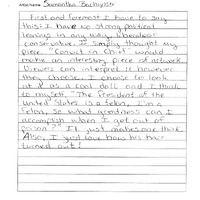 Artist Name: Samantha Bachynski
First and foremost I have to say
this: I have no strong political
leanings in any way, liberal or
conservative. I simply thought my
piece "Convict in Chief" would
make an interesting piece of artwork.
Viewers can interpret it however
they choose. I choose to look
at it as a cool doll and I think
to myself, "The President of the
United States is a felon, I'm a
felon, so what goodness can I
accomplish when I get out of
prison?" It just makes one think.
Also, I just love how his hair
turned out!